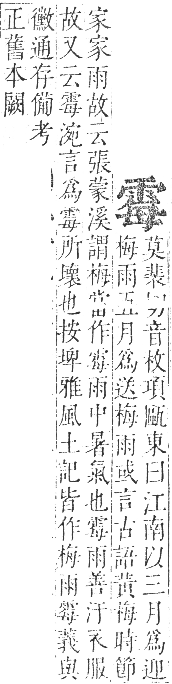 霉
莫裴切音枚項甌東曰江南以三月為迎
梅雨五月為送梅雨或言古語黃梅時節
家家雨故云張蒙溪謂梅當作霉雨中暑氣也霉雨善汙衣服
故又云霉涴言為霉所壞也按埤雅風土記皆作梅雨霉義與
黴通存備考
正舊本闕